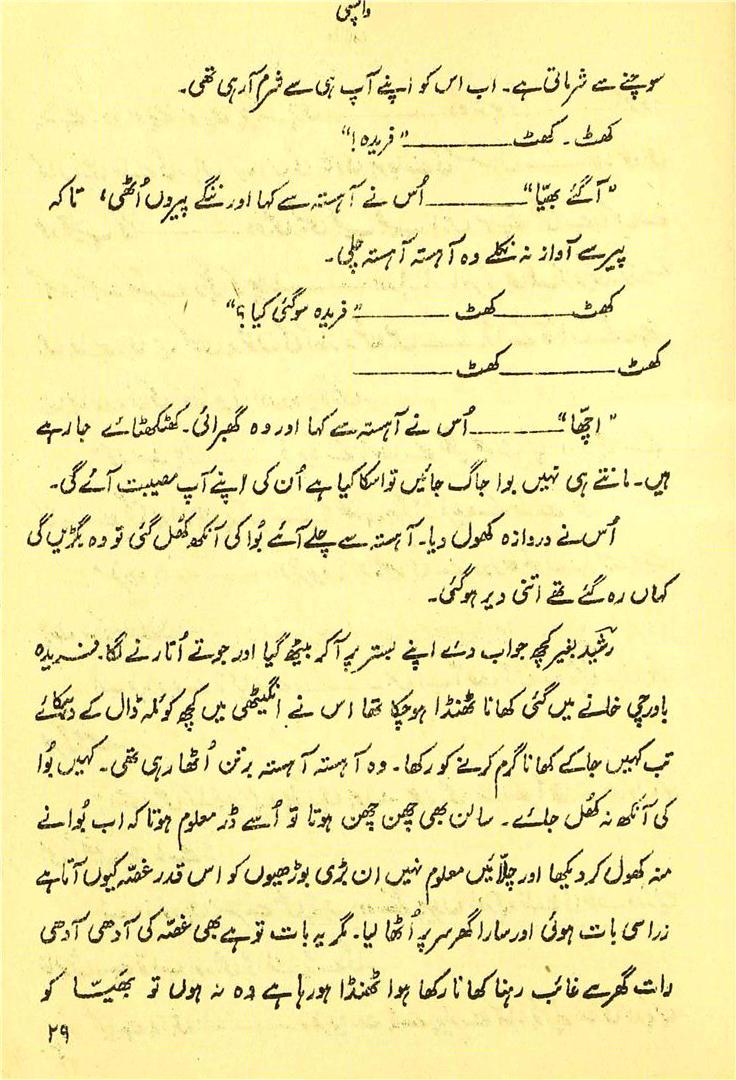 واپسی
سوچنے سے شرماتی ہے۔ اب اس کو اپنے آپ ہی سے شرم آرہی تھی۔
کھٹ۔ کھٹ ــــــــــ "فریدہ!"
"آگئے بھیّا" ــــــــــ اُس نے آہستہ سے کہا اور ننگے پیروں اُٹھی، تاکہ
پیر سے آواز نہ نکلے وہ آہستہ آہستہ چلی۔
کھٹ ــــــــــ کھٹ ــــــــــ "فریدہ سوگئی کیا؟"
کھٹ ــــــــــ کھٹ ــــــــــ
"اچھّا" ــــــــــ اُس نے آہستہ سے کہا اور وہ گھبرائی۔ کھٹکھٹائے جارہے
ہیں۔ مانتے ہی نہیں بوا جاگ جائیں تو اسکا کیا ہے اُن کی اپنے آپ مصیبت آئے گی۔
اُس نے دروازہ کھول دیا۔ آہستہ سے چلے آئے بُوا کی آنکھ کُھل گئی تو وہ بگڑیں گی
کہاں رہ گئے تھے اتنی دیر ہوگئی۔
رشید بغیر کچھ جواب دئے اپنے بستر پر آکر بیٹھ گیا اور جوتے اُتارنے لگا۔ فریدہ
باورچی خانے میں گئی کھانا ٹھنڈا ہوچکا تھا اس نے انگیٹھی میں کچھ کوئلہ ڈال کے دہکائے
تب کہیں جاکے کھانا گرم کرنے کو رکھا۔ وہ آہستہ آہستہ برتن اُٹھا رہی تھی۔ کہیں بُوا
کی آنکھ نہ کُھل جائے۔ سالن بھی چھن چھن ہوتا تو اُسے ڈر معلوم ہوتا کہ اب بُوا نے
منہ کھول کر دیکھا اور چلّائیں معلوم نہیں ان بڑی بوڑھیوں کو اس قدر غصّہ کیوں آتا ہے
زرا سی بات ہوئی اور سارا گھر سر پر اُٹھا لیا۔ مگر یہ بات تو ہے بھی غصّہ کی آدھی آدھی
رات گھر سے غائب رہنا کھانا رکھا ہوا ٹھنڈا ہورہا ہے وہ نہ ہوں تو بھیّا کو
۲۹